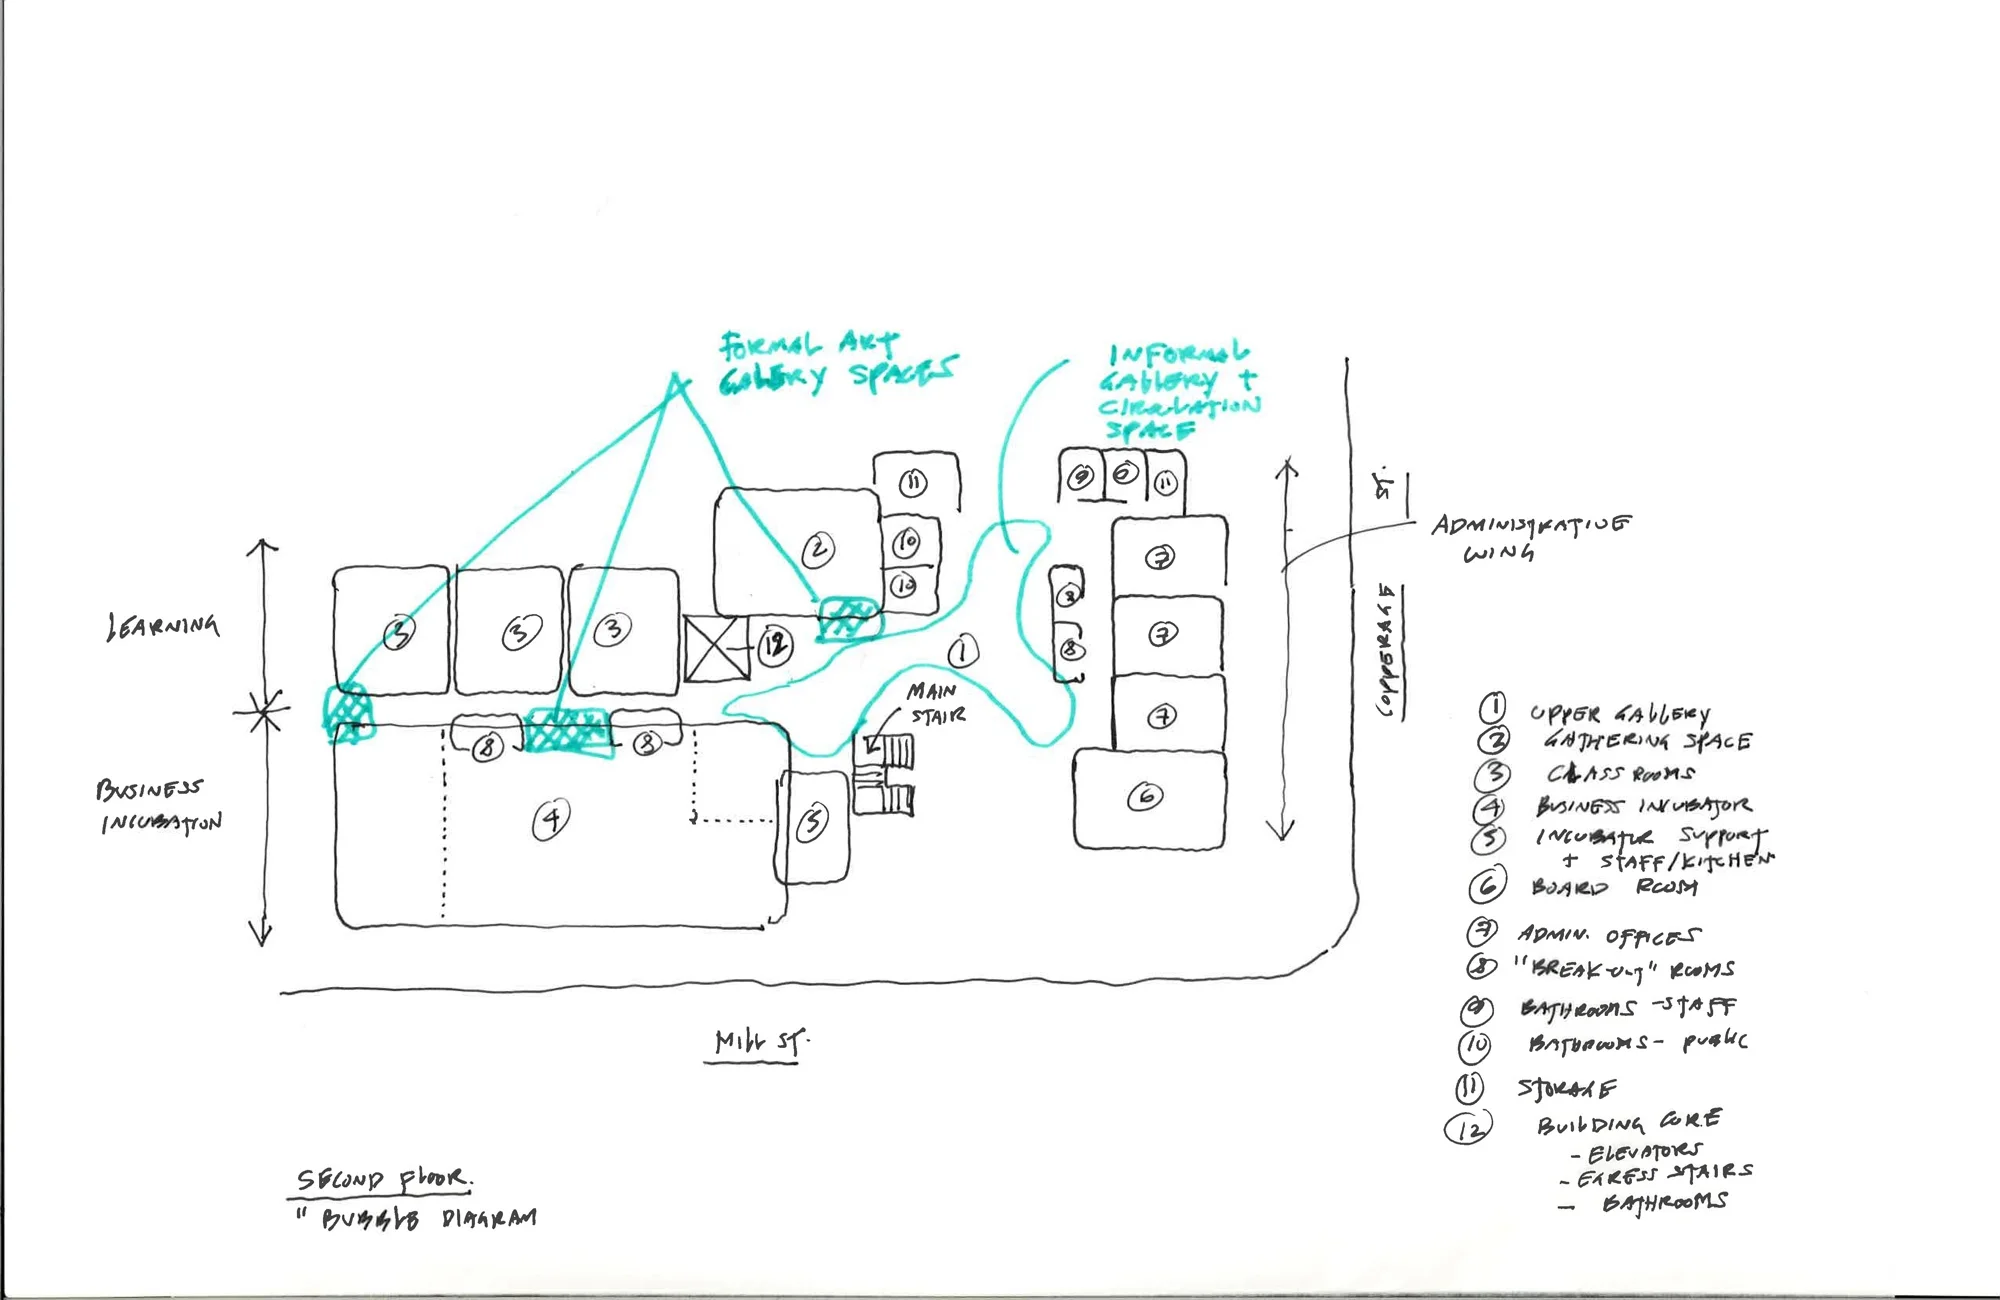 FORMAL ART
GALLERY SPACES
INFORMAL
GALLERY +
CIRCULATION
SPACE
11
9
6
11
2
10
10
7
ST.
COPPERAGE
ADMINISTRATIVE
WING
LEARNING
3
3
3
12
1
8
8
7
7
MAIN
STAIR
8
8
BUSINESS
INCUBATION
4
5
6
1 UPPER GALLERY
2 GATHERING SPACE
3 CLASS ROOMS
4 BUSINESS INCUBATOR
5 INCUBATOR SUPPORT
+ STAFF/KITCHEN
6 BOARD ROOM
7 ADMIN. OFFICES
8 "BREAK-OUT" ROOMS
9 BATHROOMS - STAFF
10 BATHROOMS - PUBLIC
11 STORAGE
12 BUILDING CORE
- ELEVATORS
- EGRESS STAIRS
- BATHROOMS
MILL ST.
SECOND FLOOR.
" BUBBLE DIAGRAM